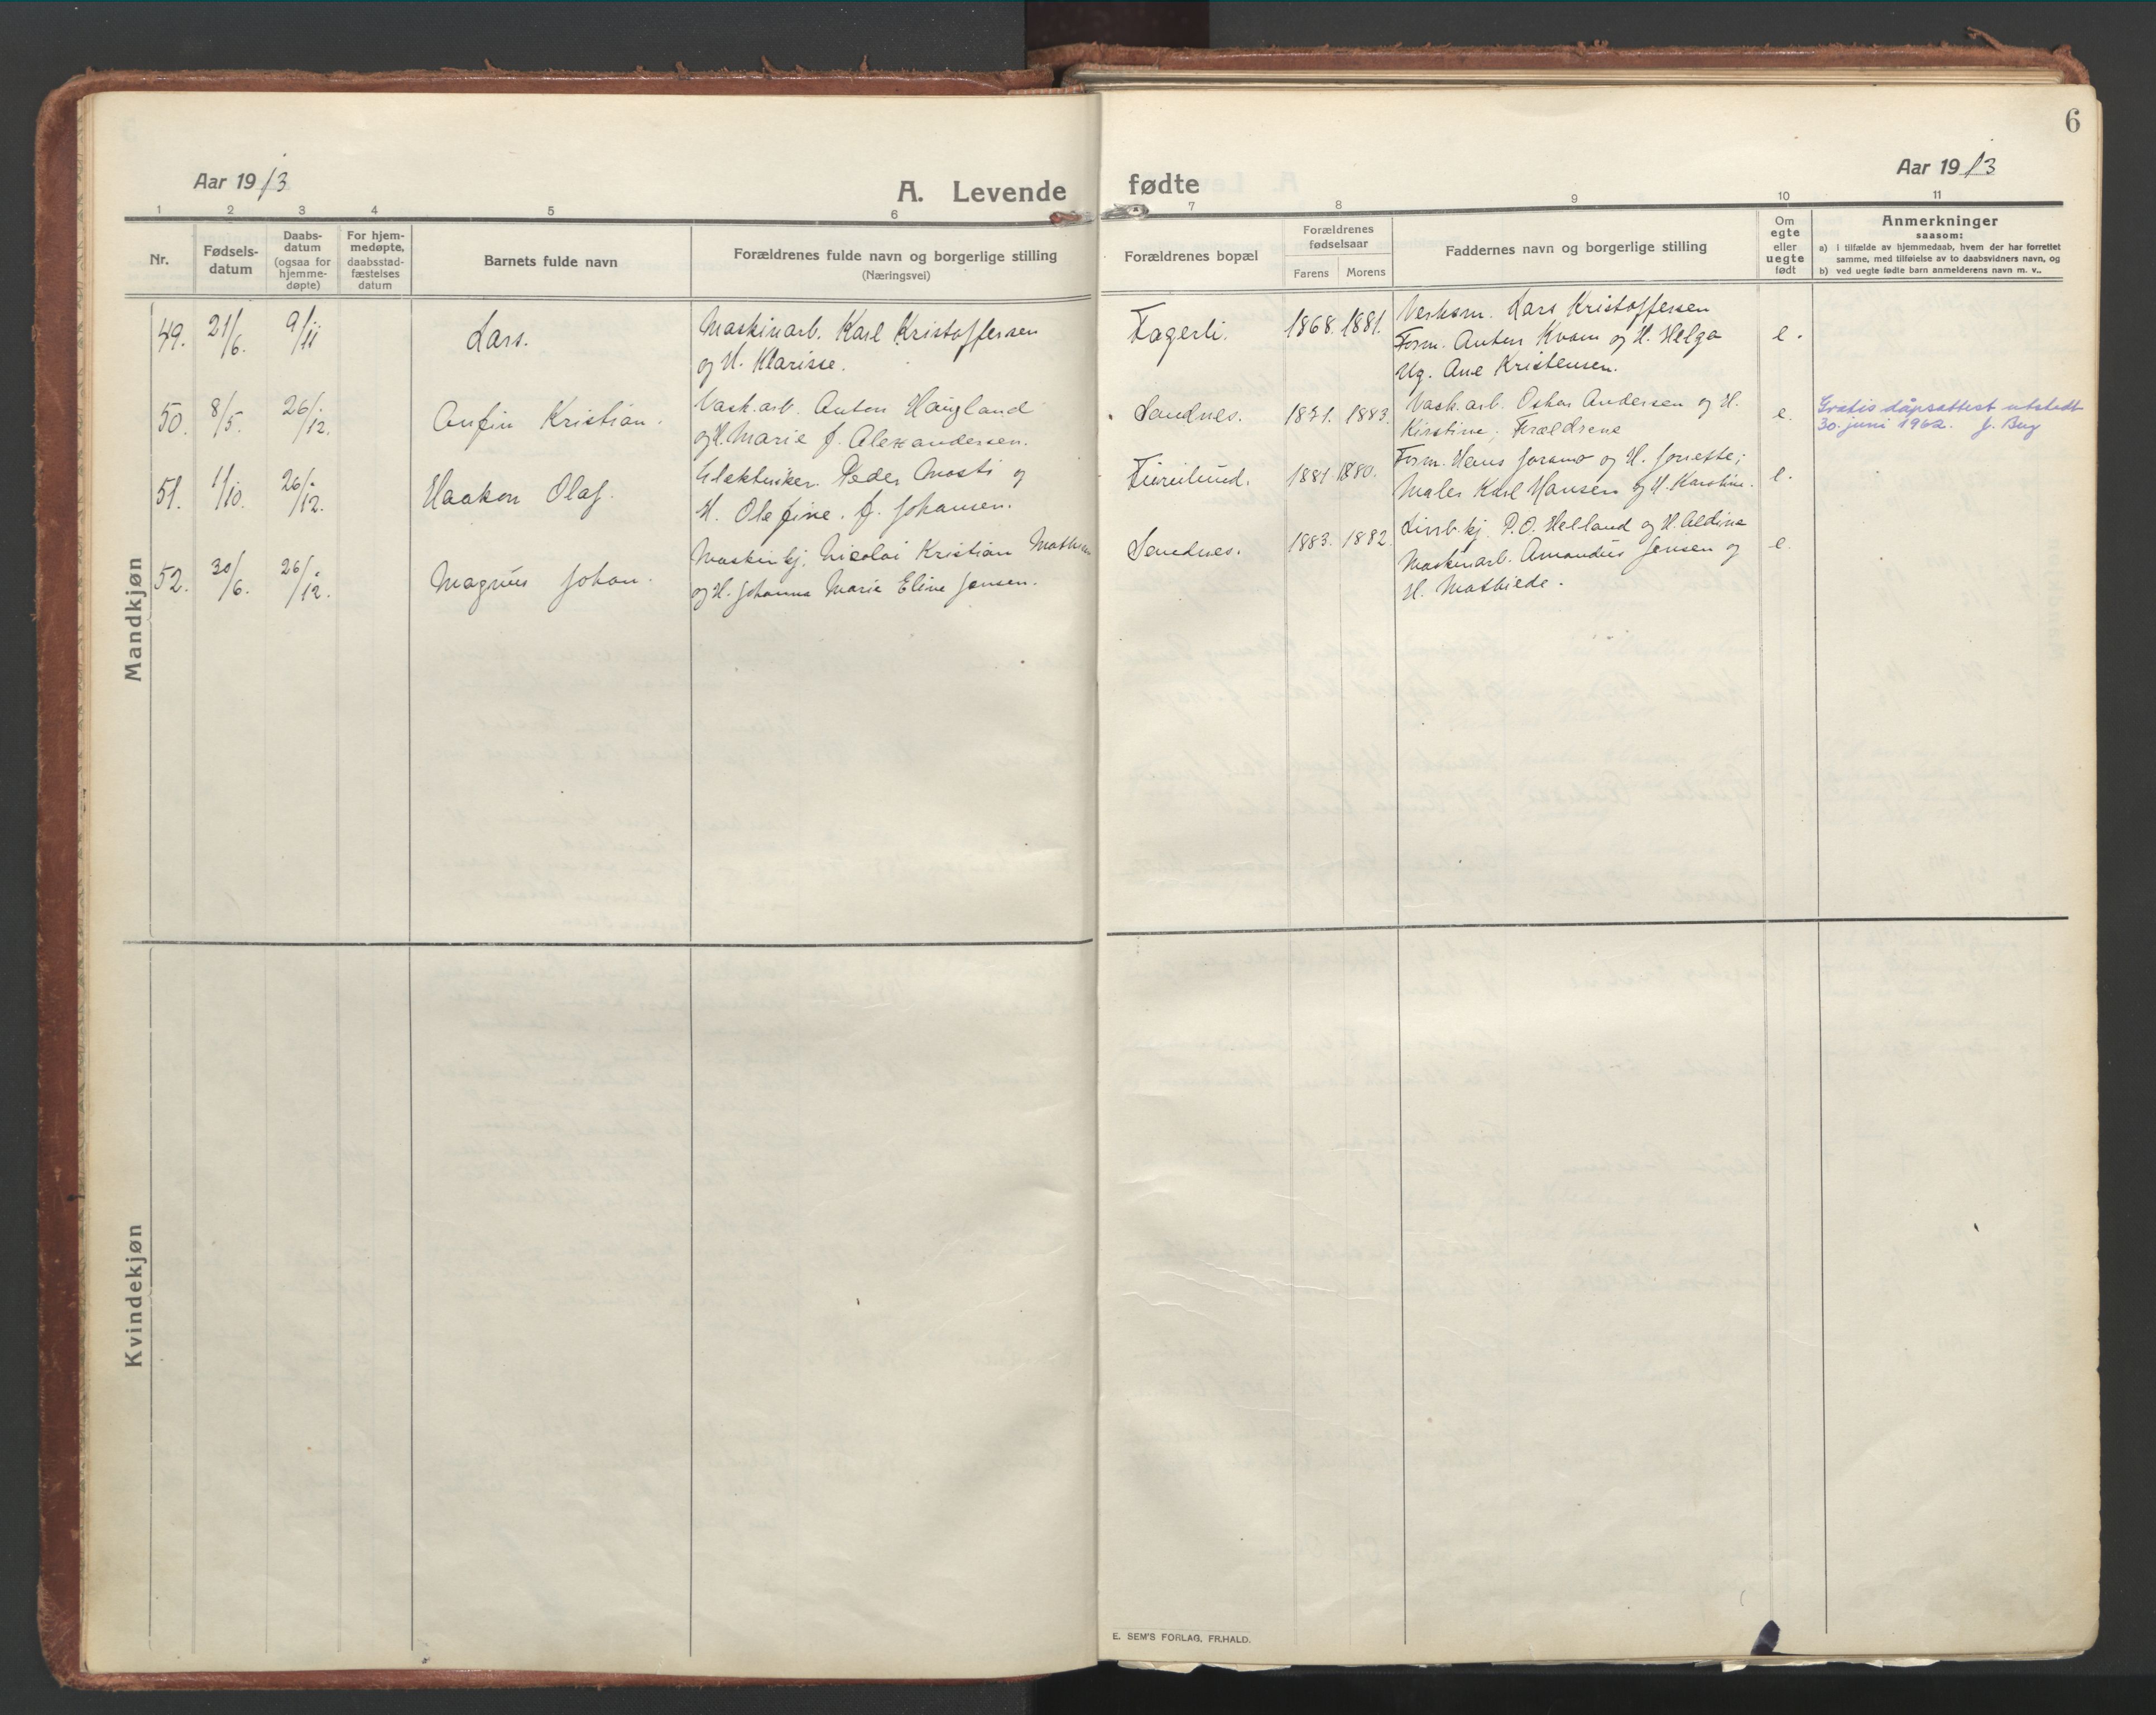 6
Aar 1913
A. Levende fødte
Aar 1913
1 2 3 4 5 6 7 8 9 10 11
Nr.
Fødsels-
datum
Daabs-
datum
(ogsaa for
hjemme-
døpte)
For hjem-
medøpte,
daabsstad-
fæstelses
datum
Barnets fulde navn
Forældrenes fulde navn og borgerlige stilling
(Næringsvei)
Forældrenes bopæl
Forældrenes
fødselsaar
Farens Morens
Faddernes navn og borgerlige stilling
Om
egte
eller
uegte
født
Anmerkninger
saasom:
a) i tilfælde av hjemmedaab, hvem der har forrettet
samme, med tilføielse av to daabsvidners navn, og
b) ved uegte fødte barn anmelderens navn m. v..
Mandkjøn
49. 21/6. 9/11 Lars.
Maskinarb. Karl Kristoffersen
og H. Klarisse.
Fagerli. 1868. 1881.
Verksm. Lars Kristoffersen
Form. Anton Kvam og H. Helga
Ug. Ane Kristensen.
e.
50. 8/5. 26/12. Anfin Kristian.
Vask.arb. Anton Haugland
og H. Marie f. Alexandersen.
Sandnes. 1871. 1883.
Vask.arb. Oskar Andersen og H.
Kirstine; Forældrene
e.
Gratis dåpsattest utstedt
30. juni 1962. J. Bug
51. 1/10. 26/12. Haakon Olaf.
Elektriker Peder Mosti og
H. Olefine f. Johansen.
Furulund. 1881. 1880.
Form. Hans Joramo og H. Jonette;
Maler Karl Hansen og H. Karoline.
e.
52. 30/6. 26/12. Magnus Johan.
Maskinkj. Nicolai Kristian Mathisen
og H. Johanna Marie Eline Jensen.
Sandnes. 1883. 1882.
P.O. Helland og H. Aldine
Maskinarb. Amandus Jensen og
H. Mathilde.
e.
Kvindekjøn
E. SEM'S FORLAG, FR.HALD.